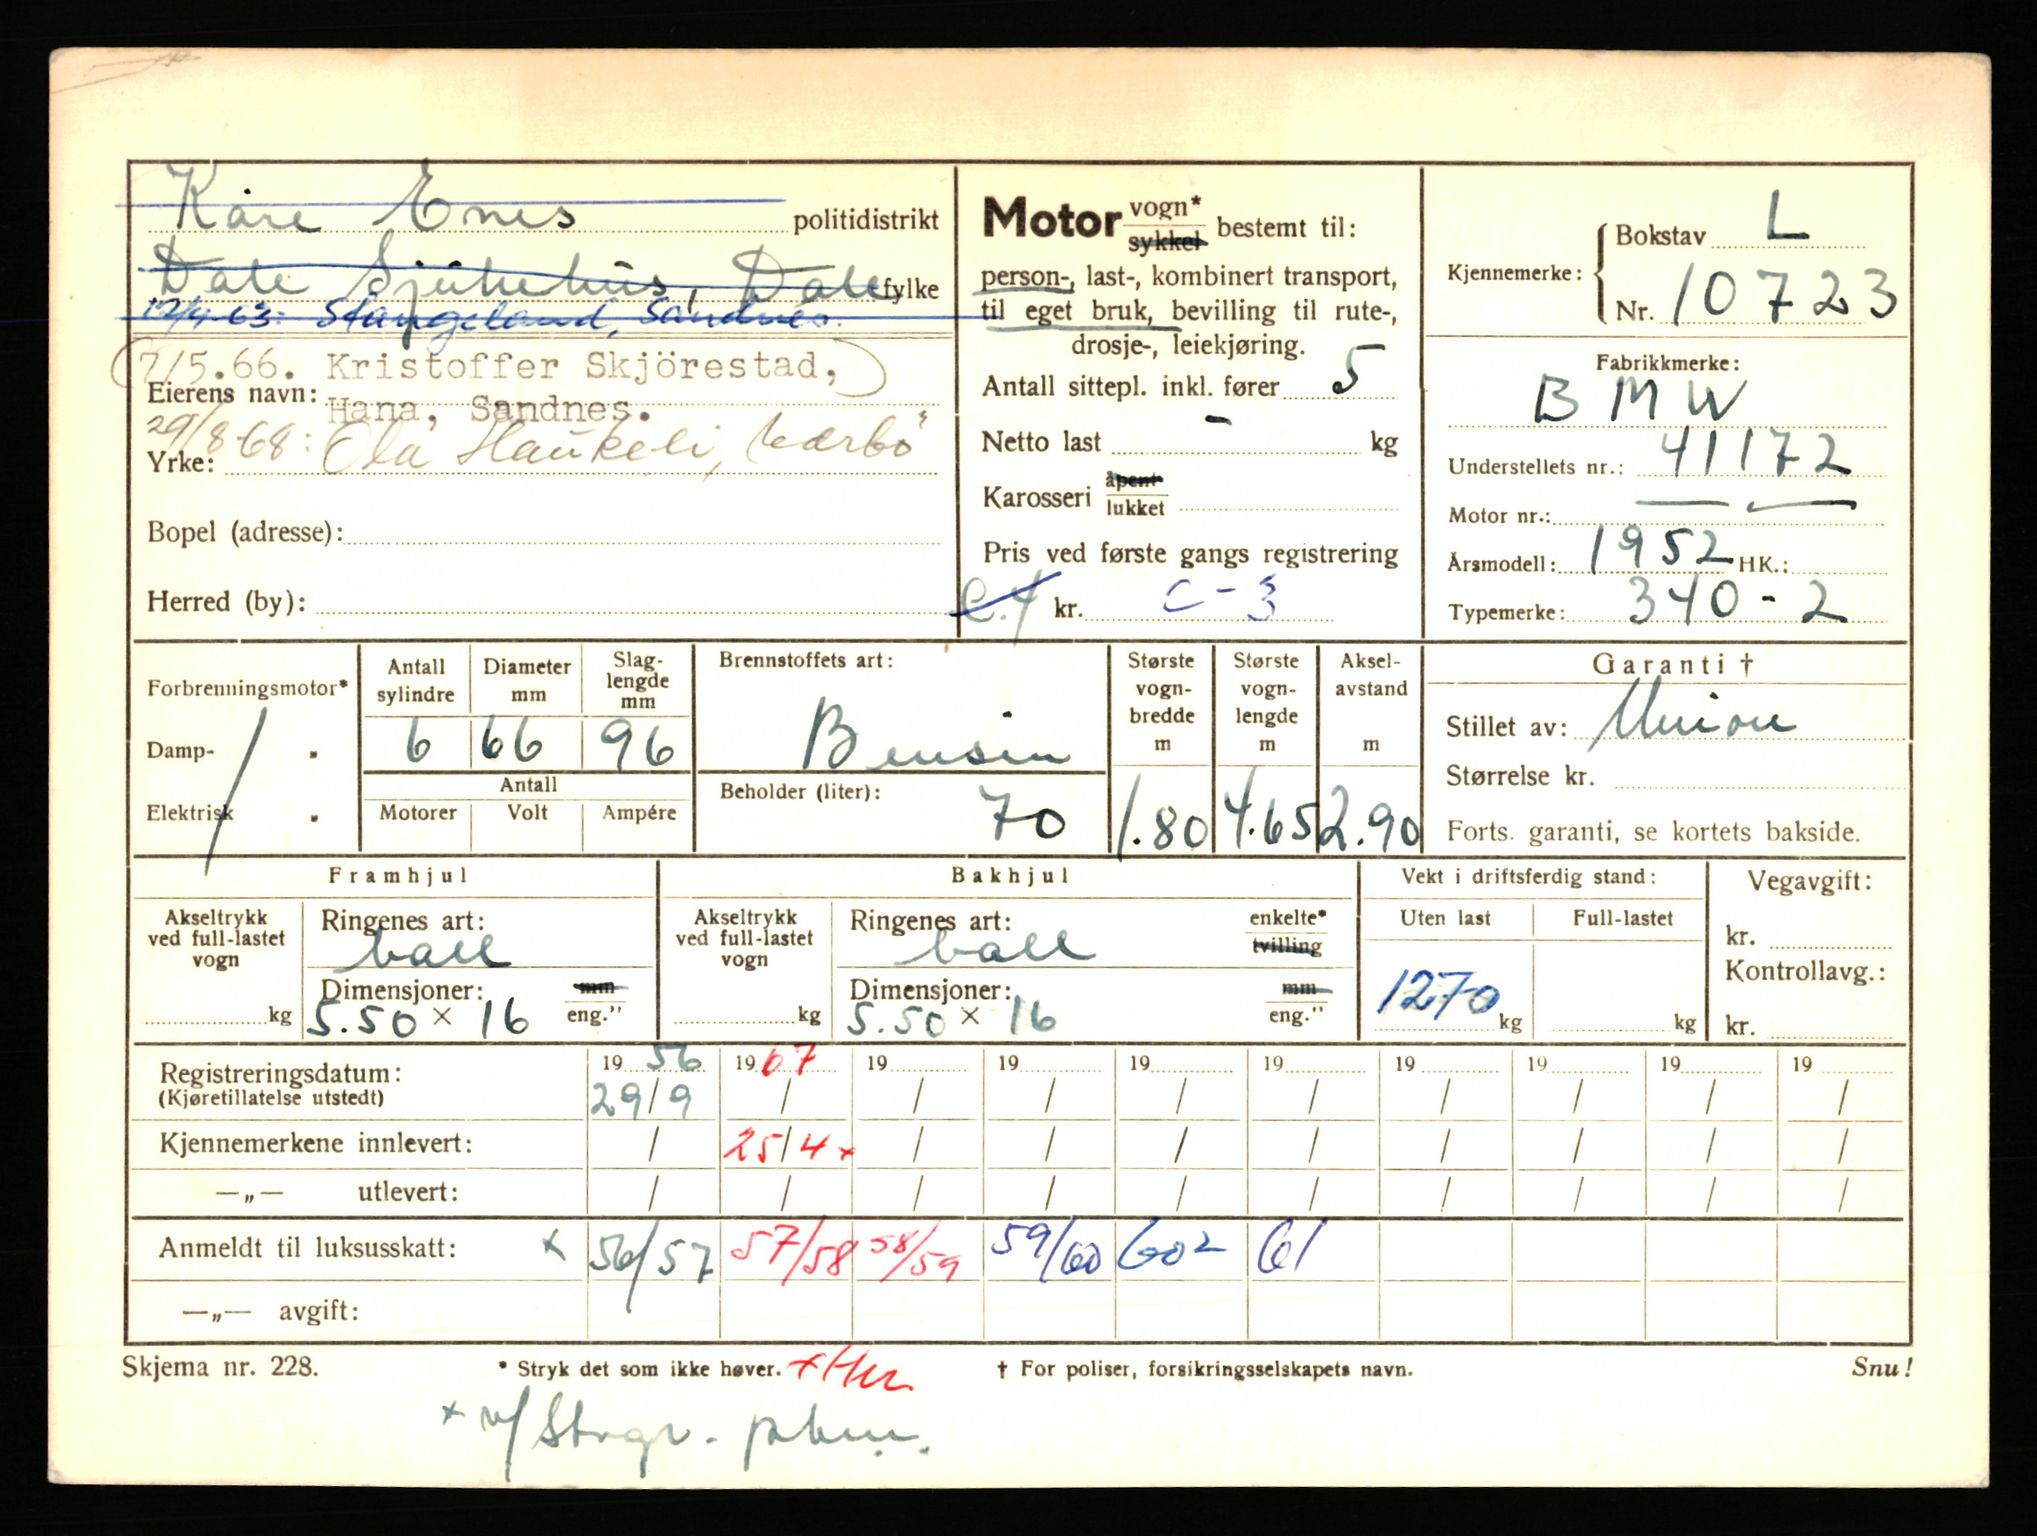 Kåre Enes politidistrikt
Dale Sjukehus, Dale fylke
12/4-63: Stangeland, Sandnes.
7/5.66. Kristoffer Skjörestad,
Eierens navn: Hana, Sandnes.
29/8-68: Ola Haukeli, Værbö
Yrke:
Bopel (adresse):
Herred (by):
Motor vogn* sykkel bestemt til:
person-, last-, kombinert transport,
til eget bruk, bevilling til rute-,
drosje-, leiekjøring.
Antall sittepl. inkl. fører 5
Netto last - kg
Karosseri åpent lukket
Pris ved første gangs registrering
e.4 kr. C-3
Kjennemerke: Bokstav L
Nr. 10723
Fabrikkmerke:
BMW
Understellets nr.: 41172
Motor nr.:
Årsmodell: 1952 HK.:
Typemerke: 340-2
Forbrenningsmotor*
Damp- "
Elektrisk "
Antall sylindre 6
Diameter mm 66
Slag-lengde mm 96
Antall
Motorer Volt Ampére
Brennstoffets art:
Bensin
Beholder (liter): 70
Største vogn-bredde m 1.80
Største vogn-lengde m 4.65
Aksel-avstand m 2.90
Garanti †
Stillet av: Union
Størrelse kr.
Forts. garanti, se kortets bakside.
Framhjul
Akseltrykk ved full-lastet vogn kg
Ringenes art: ball
Dimensjoner: mm
5.50 × 16 eng."
Bakhjul
Akseltrykk ved full-lastet vogn kg
Ringenes art: ball enkelte* tvilling
Dimensjoner: mm
5.50 × 16 eng."
Vekt i driftsferdig stand:
Uten last Full-lastet
1270 kg kg
Vegavgift:
kr.
Kontrollavg.:
kr.
Registreringsdatum: 19 56 19 67 19 19 19 19 19 19 19 19
(Kjøretillatelse utstedt) 29/9 / / / / / / / / /
Kjennemerkene innlevert: / 25/4 × / / / / / / / /
—„— utlevert: / / / / / / / / / /
Anmeldt til luksusskatt: × 56/57 57/58 58/59 59/60 602 61
—„— avgift:
Skjema nr. 228. * Stryk det som ikke høver. † For poliser, forsikringsselskapets navn. Snu!